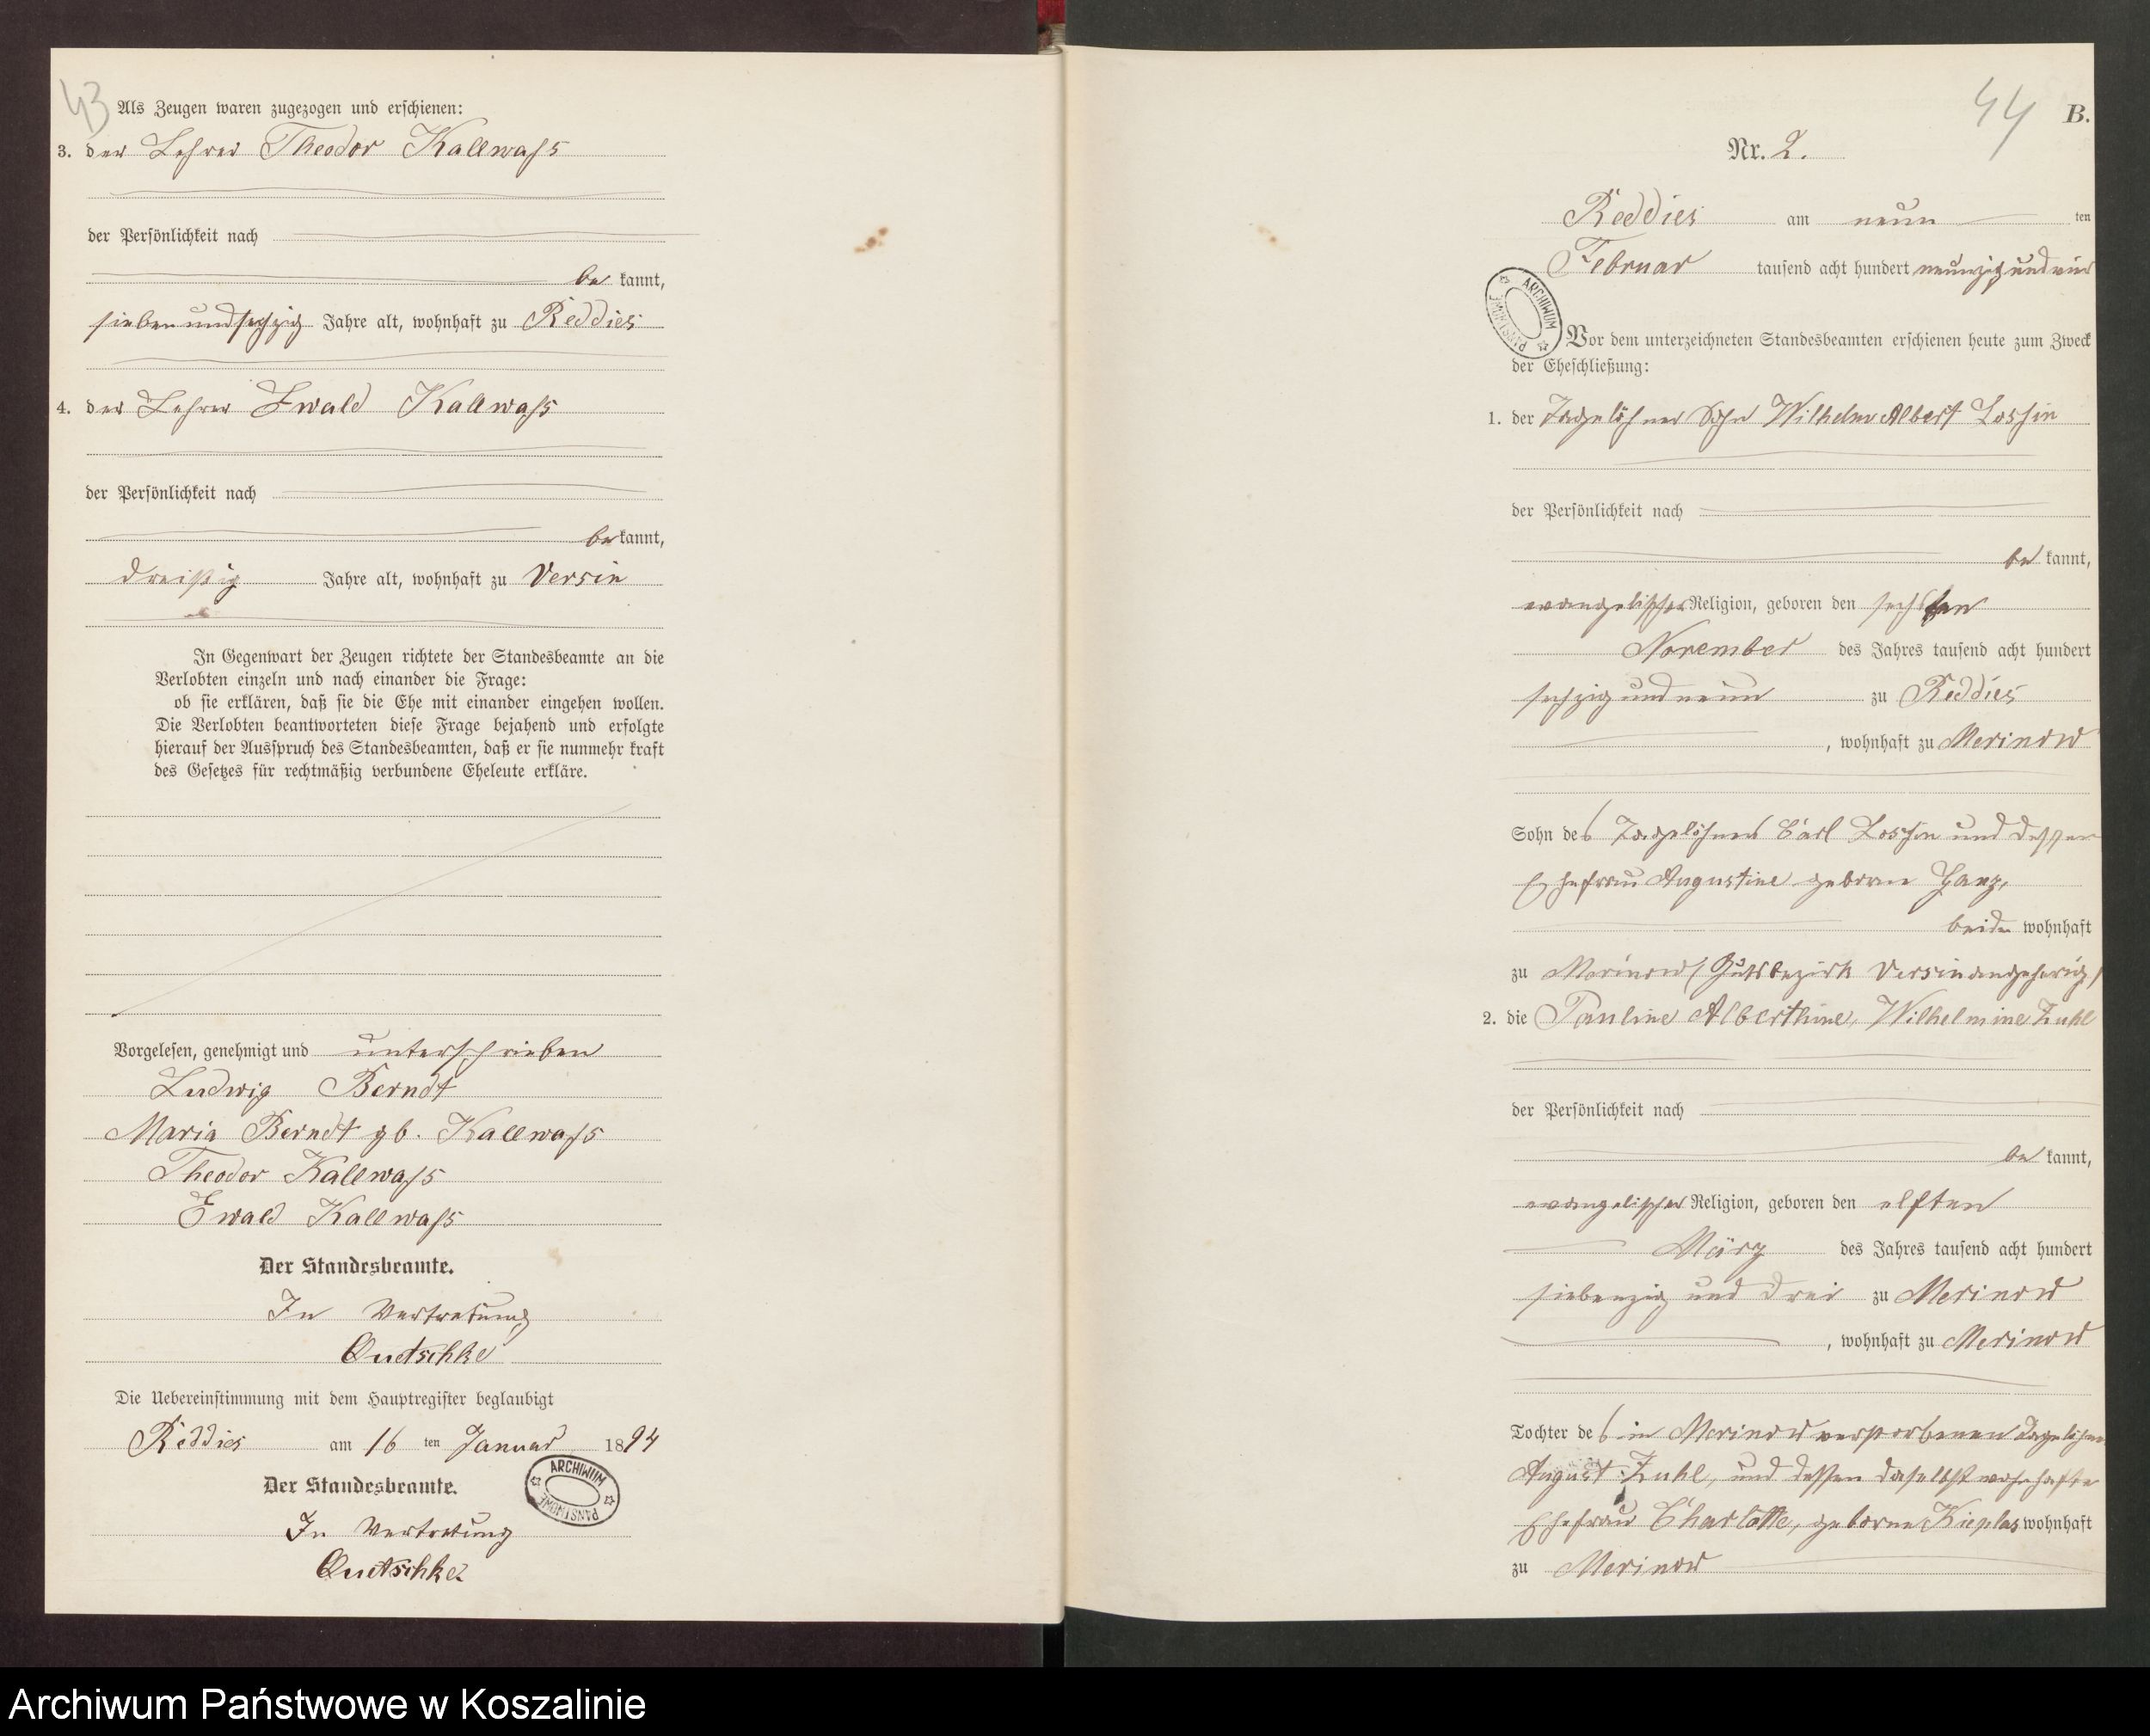 43
Als Zeugen waren zugezogen und erschienen:
3. der Lehrer Theodor Kallwaß
der Persönlichkeit nach
be kannt,
siebenundsechzig Jahre alt, wohnhaft zu Reddies
4. der Lehrer Ewald Kallwaß
der Persönlichkeit nach
be kannt,
dreißig Jahre alt, wohnhaft zu Versin
In Gegenwart der Zeugen richtete der Standesbeamte an die
Verlobten einzeln und nach einander die Frage:
ob sie erklären, daß sie die Ehe mit einander eingehen wollen.
Die Verlobten beantworteten diese Frage bejahend und erfolgte
hierauf der Ausspruch des Standesbeamten, daß er sie nunmehr kraft
des Gesetzes für rechtmäßig verbundene Eheleute erkläre.
Vorgelesen, genehmigt und unterschrieben
Ludwig Berndt
Maria Berndt gb. Kallwaß
Theodor Kallwaß
Ewald Kallwaß
Der Standesbeamte.
In Vertretung
Quetschke
Die Uebereinstimmung mit dem Hauptregister beglaubigt
Reddies am 16 ten Januar 1894
Der Standesbeamte.
In Vertretung
Quetschke
ARCHIWUM PAŃSTWOWE
44
B.
Nr. 2.
Reddies am neun ten
Februar tausend acht hundert neunzig und vier
ARCHIWUM PAŃSTWOWE
Vor dem unterzeichneten Standesbeamten erschienen heute zum Zweck
der Eheschließung:
1. der Tagelöhner Sohn Wilhelm Albert Loshin
der Persönlichkeit nach
be kannt,
evangelischer Religion, geboren den sechsten
November des Jahres tausend acht hundert
sechzig und neun zu Reddies
, wohnhaft zu Merinow
Sohn des Tagelöhners Carl Loshin und dessen
Ehefrau Augustine geborne
beide wohnhaft
zu Merinow (Gutsbezirk Versin angehörig)
2. die Pauline Alberthine, Wilhelmine Zuhl
der Persönlichkeit nach
be kannt,
evangelischer Religion, geboren den elften
März des Jahres tausend acht hundert
siebenzig und drei zu Merinow
, wohnhaft zu Merinow
Tochter des in Merinow verstorbenen Tagelöhners
August Zuhl, und dessen daselbst wohnhafte
Ehefrau Charlotte, geborne Kieplas wohnhaft
zu Merinow
Archiwum Państwowe w Koszalinie